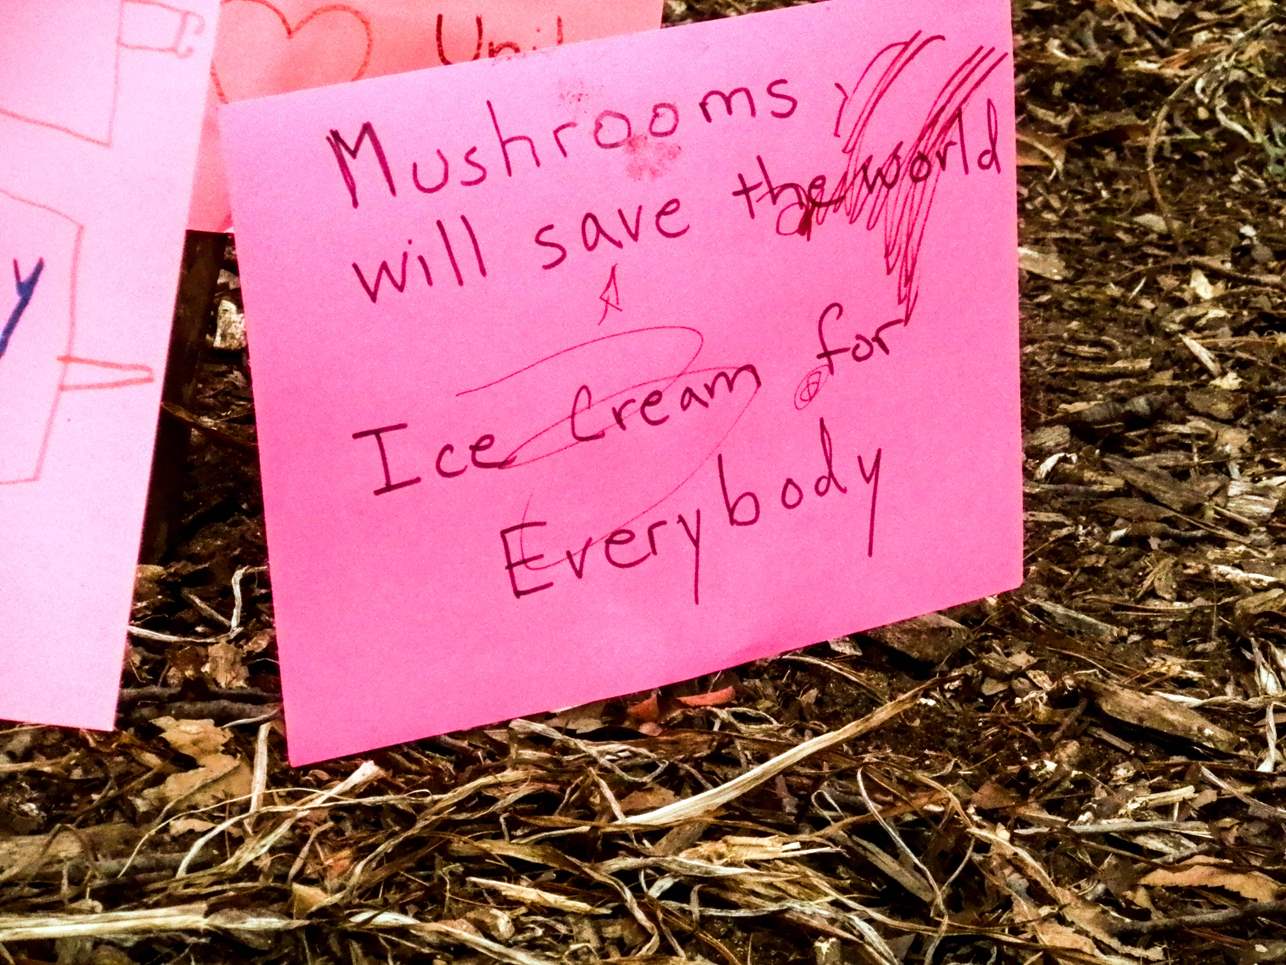 Mushrooms
will save the world
Ice Cream for
Everybody